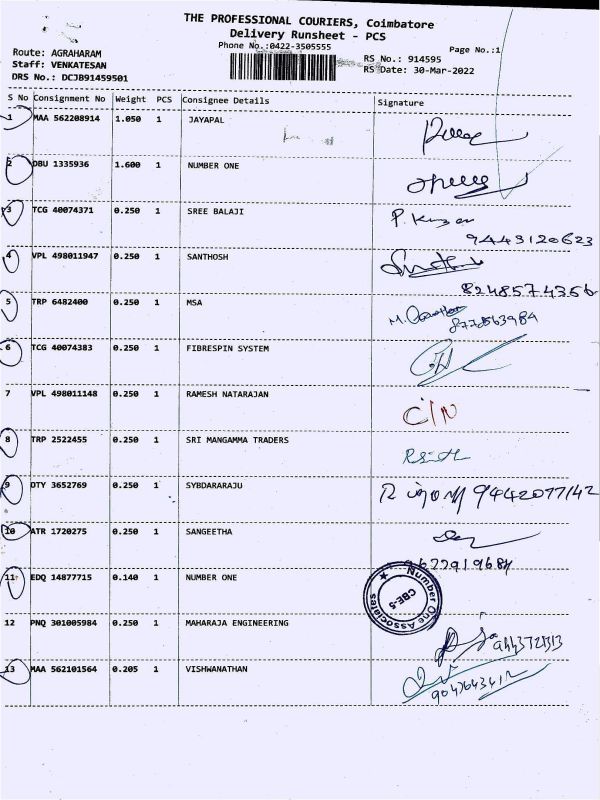 THE PROFESSIONAL COURIERS, Coimbatore
Delivery Runsheet - PCS
Phone No.:0422-3505555
Page No.:1
Route: AGRAHARAM
Staff: VENKATESAN
DRS No.: DCJB91459501
RS No.: 914595
RS Date: 30-Mar-2022
S No Consignment No Weight PCS Consignee Details Signature
1 MAA 562208914 1.050 1 JAYAPAL
2 DBU 1335936 1.600 1 NUMBER ONE
3 TCG 40074371 0.250 1 SREE BALAJI P. Kumar
9443120623
4 VPL 498011947 0.250 1 SANTHOSH
8248574356
5 TRP 6482400 0.250 1 MSA
6 TCG 40074383 0.250 1 FIBRESPIN SYSTEM
7 VPL 498011148 0.250 1 RAMESH NATARAJAN C/N
8 TRP 2522455 0.250 1 SRI MANGAMMA TRADERS
9 DTY 3652769 0.250 1 SYBDARARAJU 9442077142
10 ATR 1720275 0.250 1 SANGEETHA
11 EDQ 14877715 0.140 1 NUMBER ONE
Number One Associates
CBE-5
12 PNQ 301005984 0.250 1 MAHARAJA ENGINEERING
13 MAA 562101564 0.205 1 VISHWANATHAN